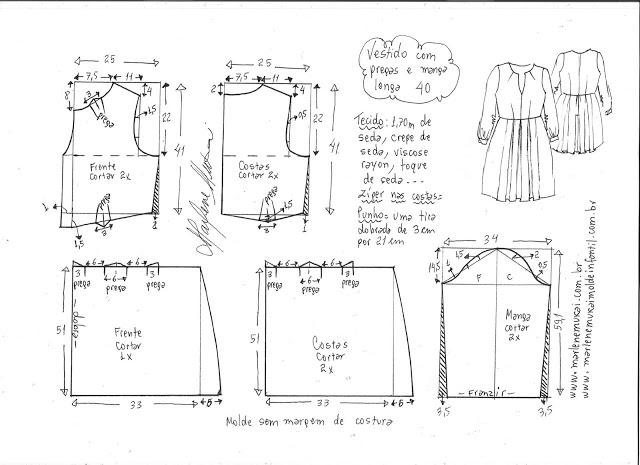 25
7,5
11
8
3
prega
4
1,5
22
41
Frente
cortar 2x
1
3
1,5
2
25
7,5
11
2
4
0,5
22
41
Costas
cortar 2x
1,5
3
1
Marlene Mukai
Vestido com
pregas e manga
longa 40
Tecido: 1,70m de
seda, crepe de
seda, viscose
rayon, toque
de seda...
Zíper nas costas.
Punho: uma tira
dobrada de 3 cm
por 21 cm
6
6
3
6
3
prega
prega
prega
51
- dobra -
Frente
Cortar
1x
33
6
6
6
3
6
3
prega
prega
prega
51
Costas
Cortar
2x
33
6
34
14,5
1
1,5
2
0,5
F
C
Manga
cortar
2x
59,1
- Franzir -
3,5
3,5
www.marlenemukai.com.br
www.marlenemukaimoldeinfantil.com.br
Molde sem margem de costura